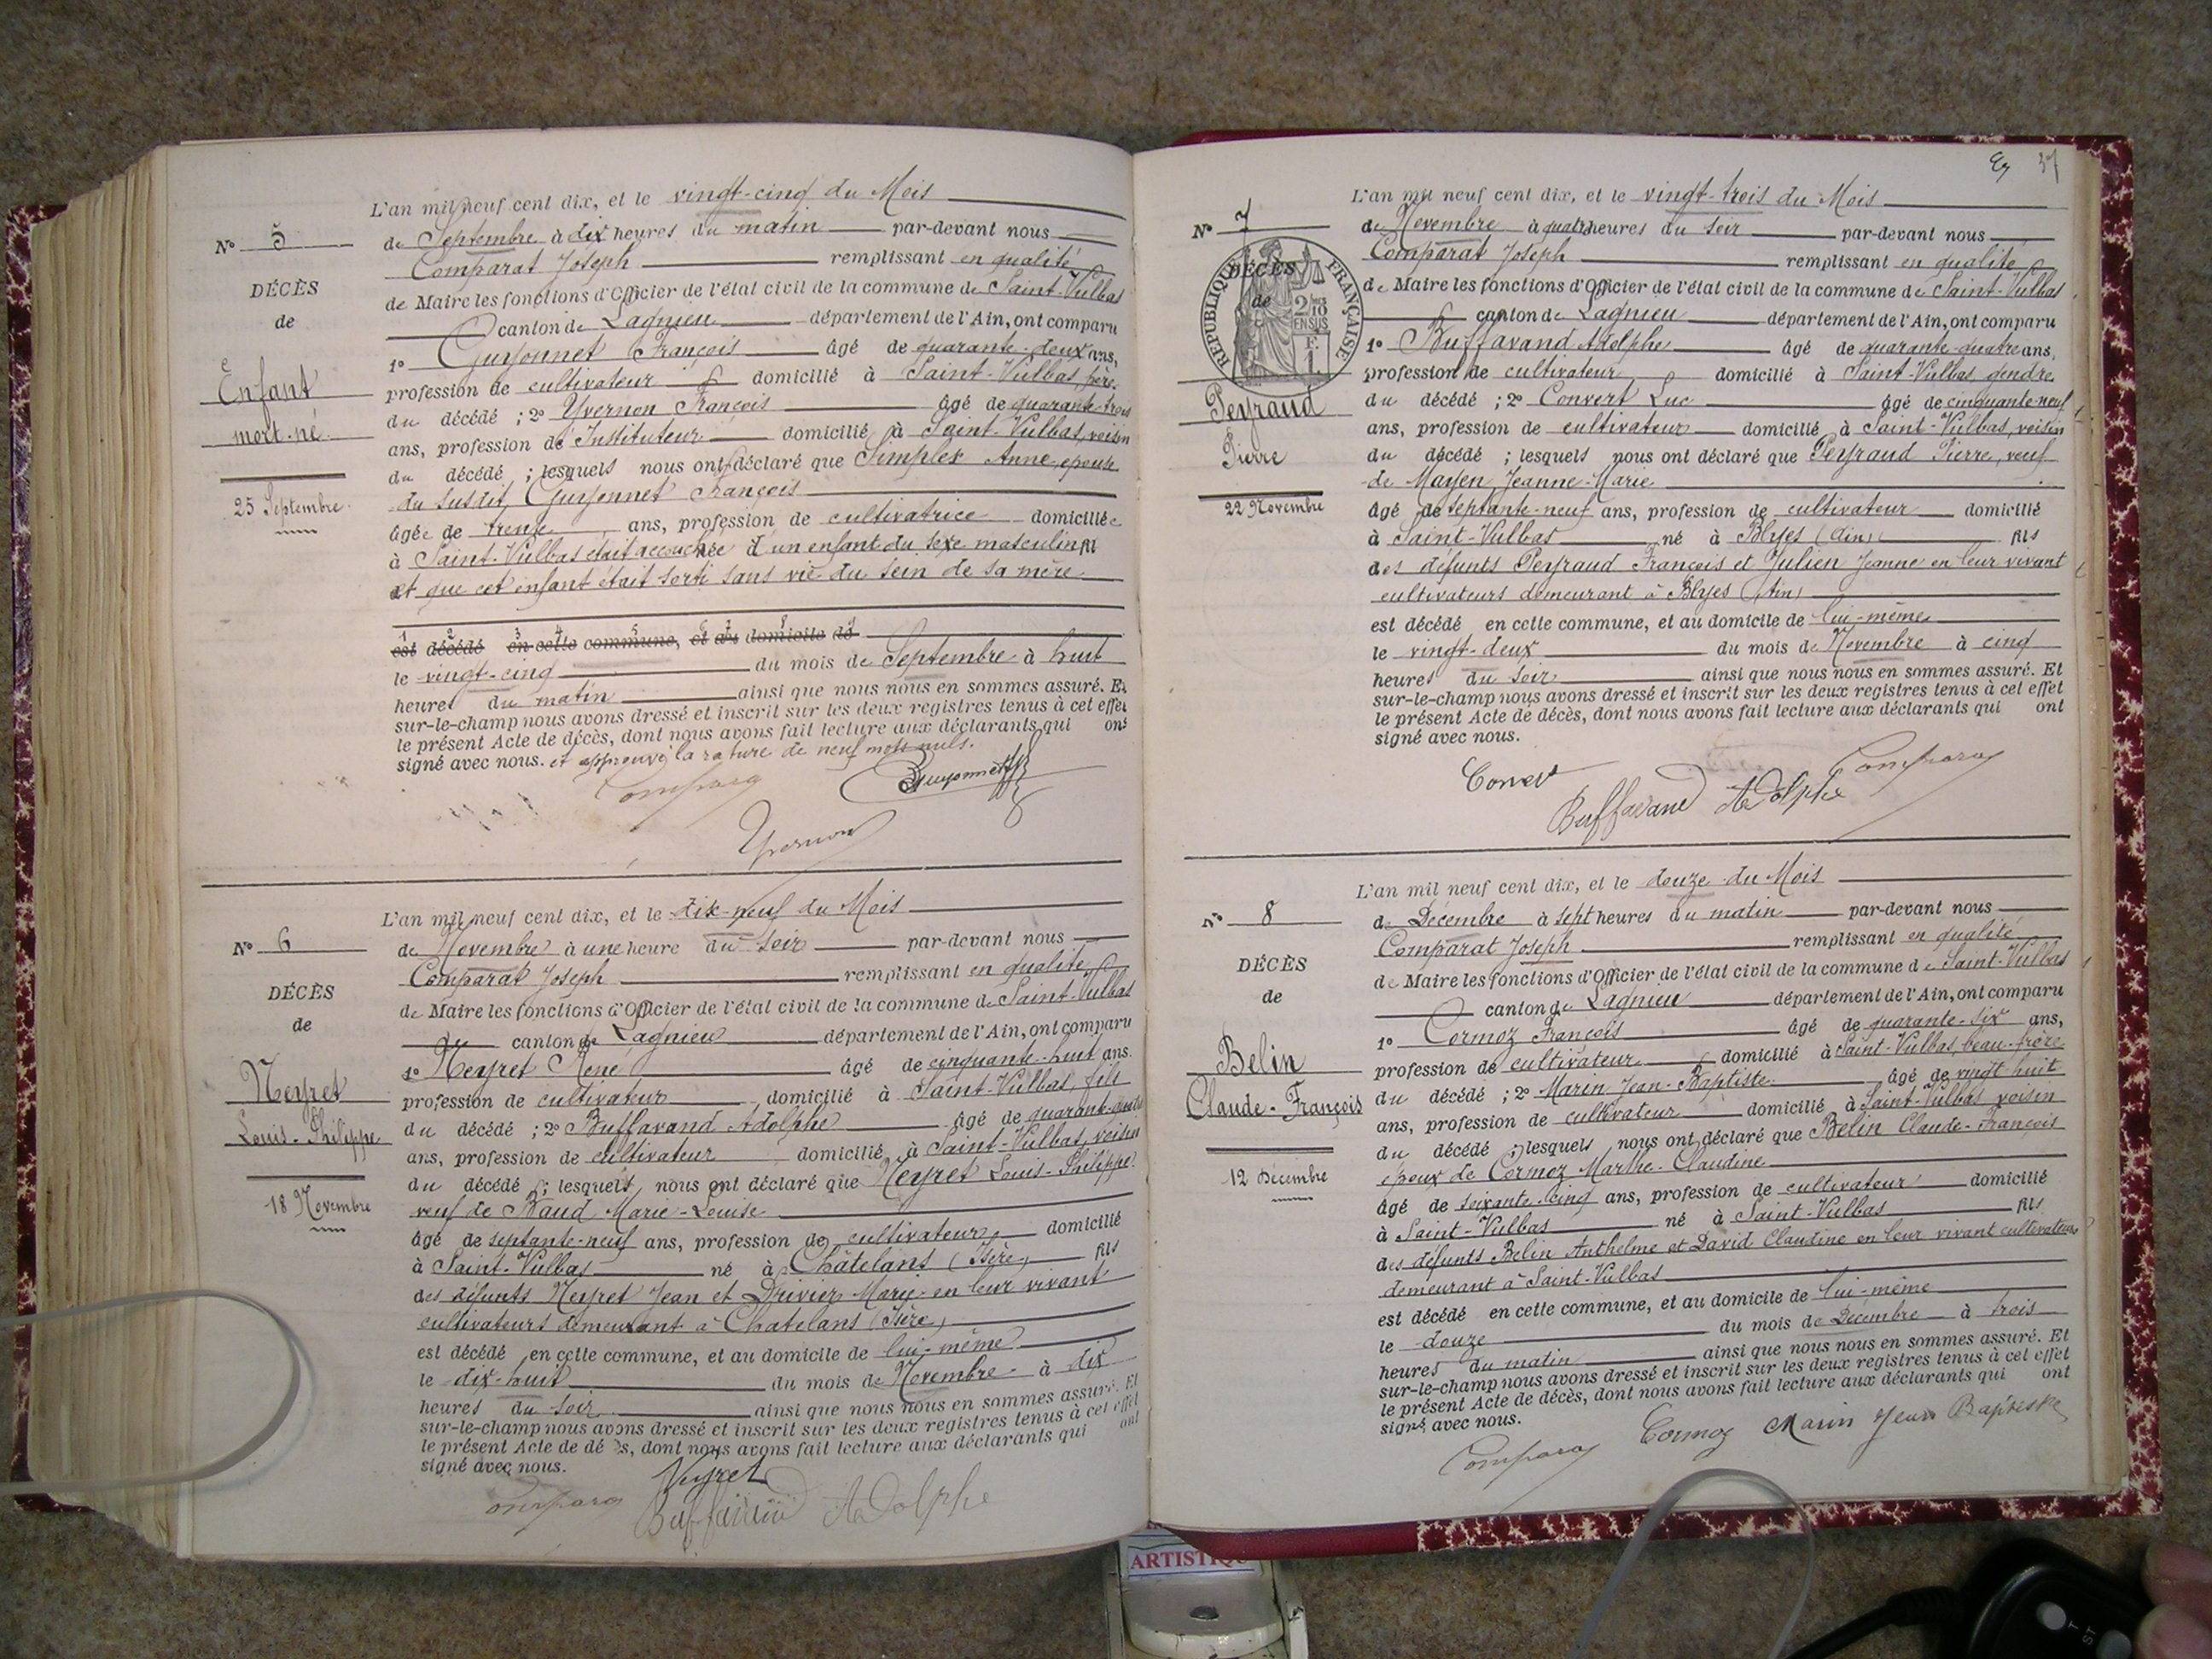 L'an mil neuf cent dix, et le vingt-cinq du Mois
N° 5
de Septembre à dix heures du matin par-devant nous
Comparat Joseph remplissant en qualité
DÉCÈS
de Maire les fonctions d'Officier de l'état civil de la commune de Saint-Vulbas
de
canton de Lagnieu département de l'Ain, ont comparu
1° Guyonnet François âgé de quarante-deux ans,
Enfant
profession de cultivateur domicilié à Saint-Vulbas, père
mort-né
du décédé ; 2° Yvernon François âgé de quarante-trois
ans, profession de Instituteur domicilié à Saint-Vulbas, voisin
du décédé ; lesquels nous ont déclaré que Simplex Anne, épouse
25 Septembre
du susdit Guyonnet François
âgée de trente ans, profession de cultivatrice domiciliée
à Saint-Vulbas était accouchée d'un enfant du sexe masculin
et que cet enfant était sorti sans vie du sein de sa mère
est décédé en cette commune, et au domicile de
le vingt-cinq du mois de Septembre à huit
heures du matin ainsi que nous nous en sommes assuré. Et
sur-le-champ nous avons dressé et inscrit sur les deux registres tenus à cet effet
le présent Acte de décès, dont nous avons fait lecture aux déclarants qui ont
signé avec nous. et approuvé la rature de neuf mots nuls.
Comparat Guyonnet
Yvernon
L'an mil neuf cent dix, et le dix-neuf du Mois
N° 6
de Novembre à une heure du soir par-devant nous
Comparat Joseph remplissant en qualité
DÉCÈS
de Maire les fonctions d'Officier de l'état civil de la commune de Saint-Vulbas
de
canton de Lagnieu département de l'Ain, ont comparu
1° Neyret René âgé de cinquante-huit ans.
Neyret
profession de cultivateur domicilié à Saint-Vulbas, fils
Louis-Philippe
du décédé ; 2° Buffavand Adolphe âgé de quarante-quatre
ans, profession de cultivateur domicilié à Saint-Vulbas, voisin
du décédé ; lesquels nous ont déclaré que Neyret Louis-Philippe
18 Novembre
veuf de Baud Marie-Louise
âgé de septante-neuf ans, profession de cultivateur domicilié
à Saint-Vulbas né à Châtelans (Isère) fils
des défunts Neyret Jean et Drivier Marie en leur vivant
cultivateurs demeurant à Chatelans (Isère)
est décédé en cette commune, et au domicile de lui-même
le dix-huit du mois de Novembre à dix
heures du soir ainsi que nous nous en sommes assuré. Et
sur-le-champ nous avons dressé et inscrit sur les deux registres tenus à cet effet
le présent Acte de décès, dont nous avons fait lecture aux déclarants qui ont
signé avec nous.
Neyret
Comparat Buffavand Adolphe
37
L'an mil neuf cent dix, et le vingt-trois du Mois
N° 7
de Novembre à quatre heures du soir par-devant nous
Comparat Joseph remplissant en qualité
DÉCÈS
de
RÉPUBLIQUE FRANÇAISE
2/10 EN SUS
F. 1
de Maire les fonctions d'Officier de l'état civil de la commune de Saint-Vulbas
canton de Lagnieu département de l'Ain, ont comparu
1° Buffavand Adolphe âgé de quarante-quatre ans,
profession de cultivateur domicilié à Saint-Vulbas, gendre
Peyraud
du décédé ; 2° Convert Luc âgé de cinquante-neuf
ans, profession de cultivateur domicilié à Saint-Vulbas, voisin
Pierre
du décédé ; lesquels nous ont déclaré que Peyraud Pierre, veuf
de Mayen Jeanne-Marie
22 Novembre
âgé de septante-neuf ans, profession de cultivateur domicilié
à Saint-Vulbas né à Blyes (Ain) fils
des défunts Peyraud François et Julien Jeanne en leur vivant
cultivateurs demeurant à Blyes (Ain)
est décédé en cette commune, et au domicile de lui-même
le vingt-deux du mois de Novembre à cinq
heures du soir ainsi que nous nous en sommes assuré. Et
sur-le-champ nous avons dressé et inscrit sur les deux registres tenus à cet effet
le présent Acte de décès, dont nous avons fait lecture aux déclarants qui ont
signé avec nous.
Comparat
Buffavand Adolphe
L'an mil neuf cent dix, et le douze du Mois
N° 8
de Décembre à sept heures du matin par-devant nous
Comparat Joseph remplissant en qualité
DÉCÈS
de Maire les fonctions d'Officier de l'état civil de la commune de Saint-Vulbas
de
canton de Lagnieu département de l'Ain, ont comparu
1° Cormoz François âgé de quarante-six ans,
Belin
profession de cultivateur domicilié à Saint-Vulbas, beau-frère
Claude-François
du décédé ; 2° Marin Jean-Baptiste âgé de vingt huit
ans, profession de cultivateur domicilié à Saint-Vulbas voisin
du décédé ; lesquels nous ont déclaré que Belin Claude-François
12 Décembre
époux de Cormoz Marthe-Claudine
âgé de soixante-cinq ans, profession de cultivateur domicilié
à Saint-Vulbas né à Saint-Vulbas fils
des défunts Belin Anthelme et David Claudine en leur vivant cultivateurs
demeurant à Saint-Vulbas
est décédé en cette commune, et au domicile de lui-même
le douze du mois de Décembre à trois
heures du matin ainsi que nous nous en sommes assuré. Et
sur-le-champ nous avons dressé et inscrit sur les deux registres tenus à cet effet
le présent Acte de décès, dont nous avons fait lecture aux déclarants qui ont
signé avec nous.
Comparat Cormoz Marin Jean Baptiste
ARTISTIQUE
T
ST